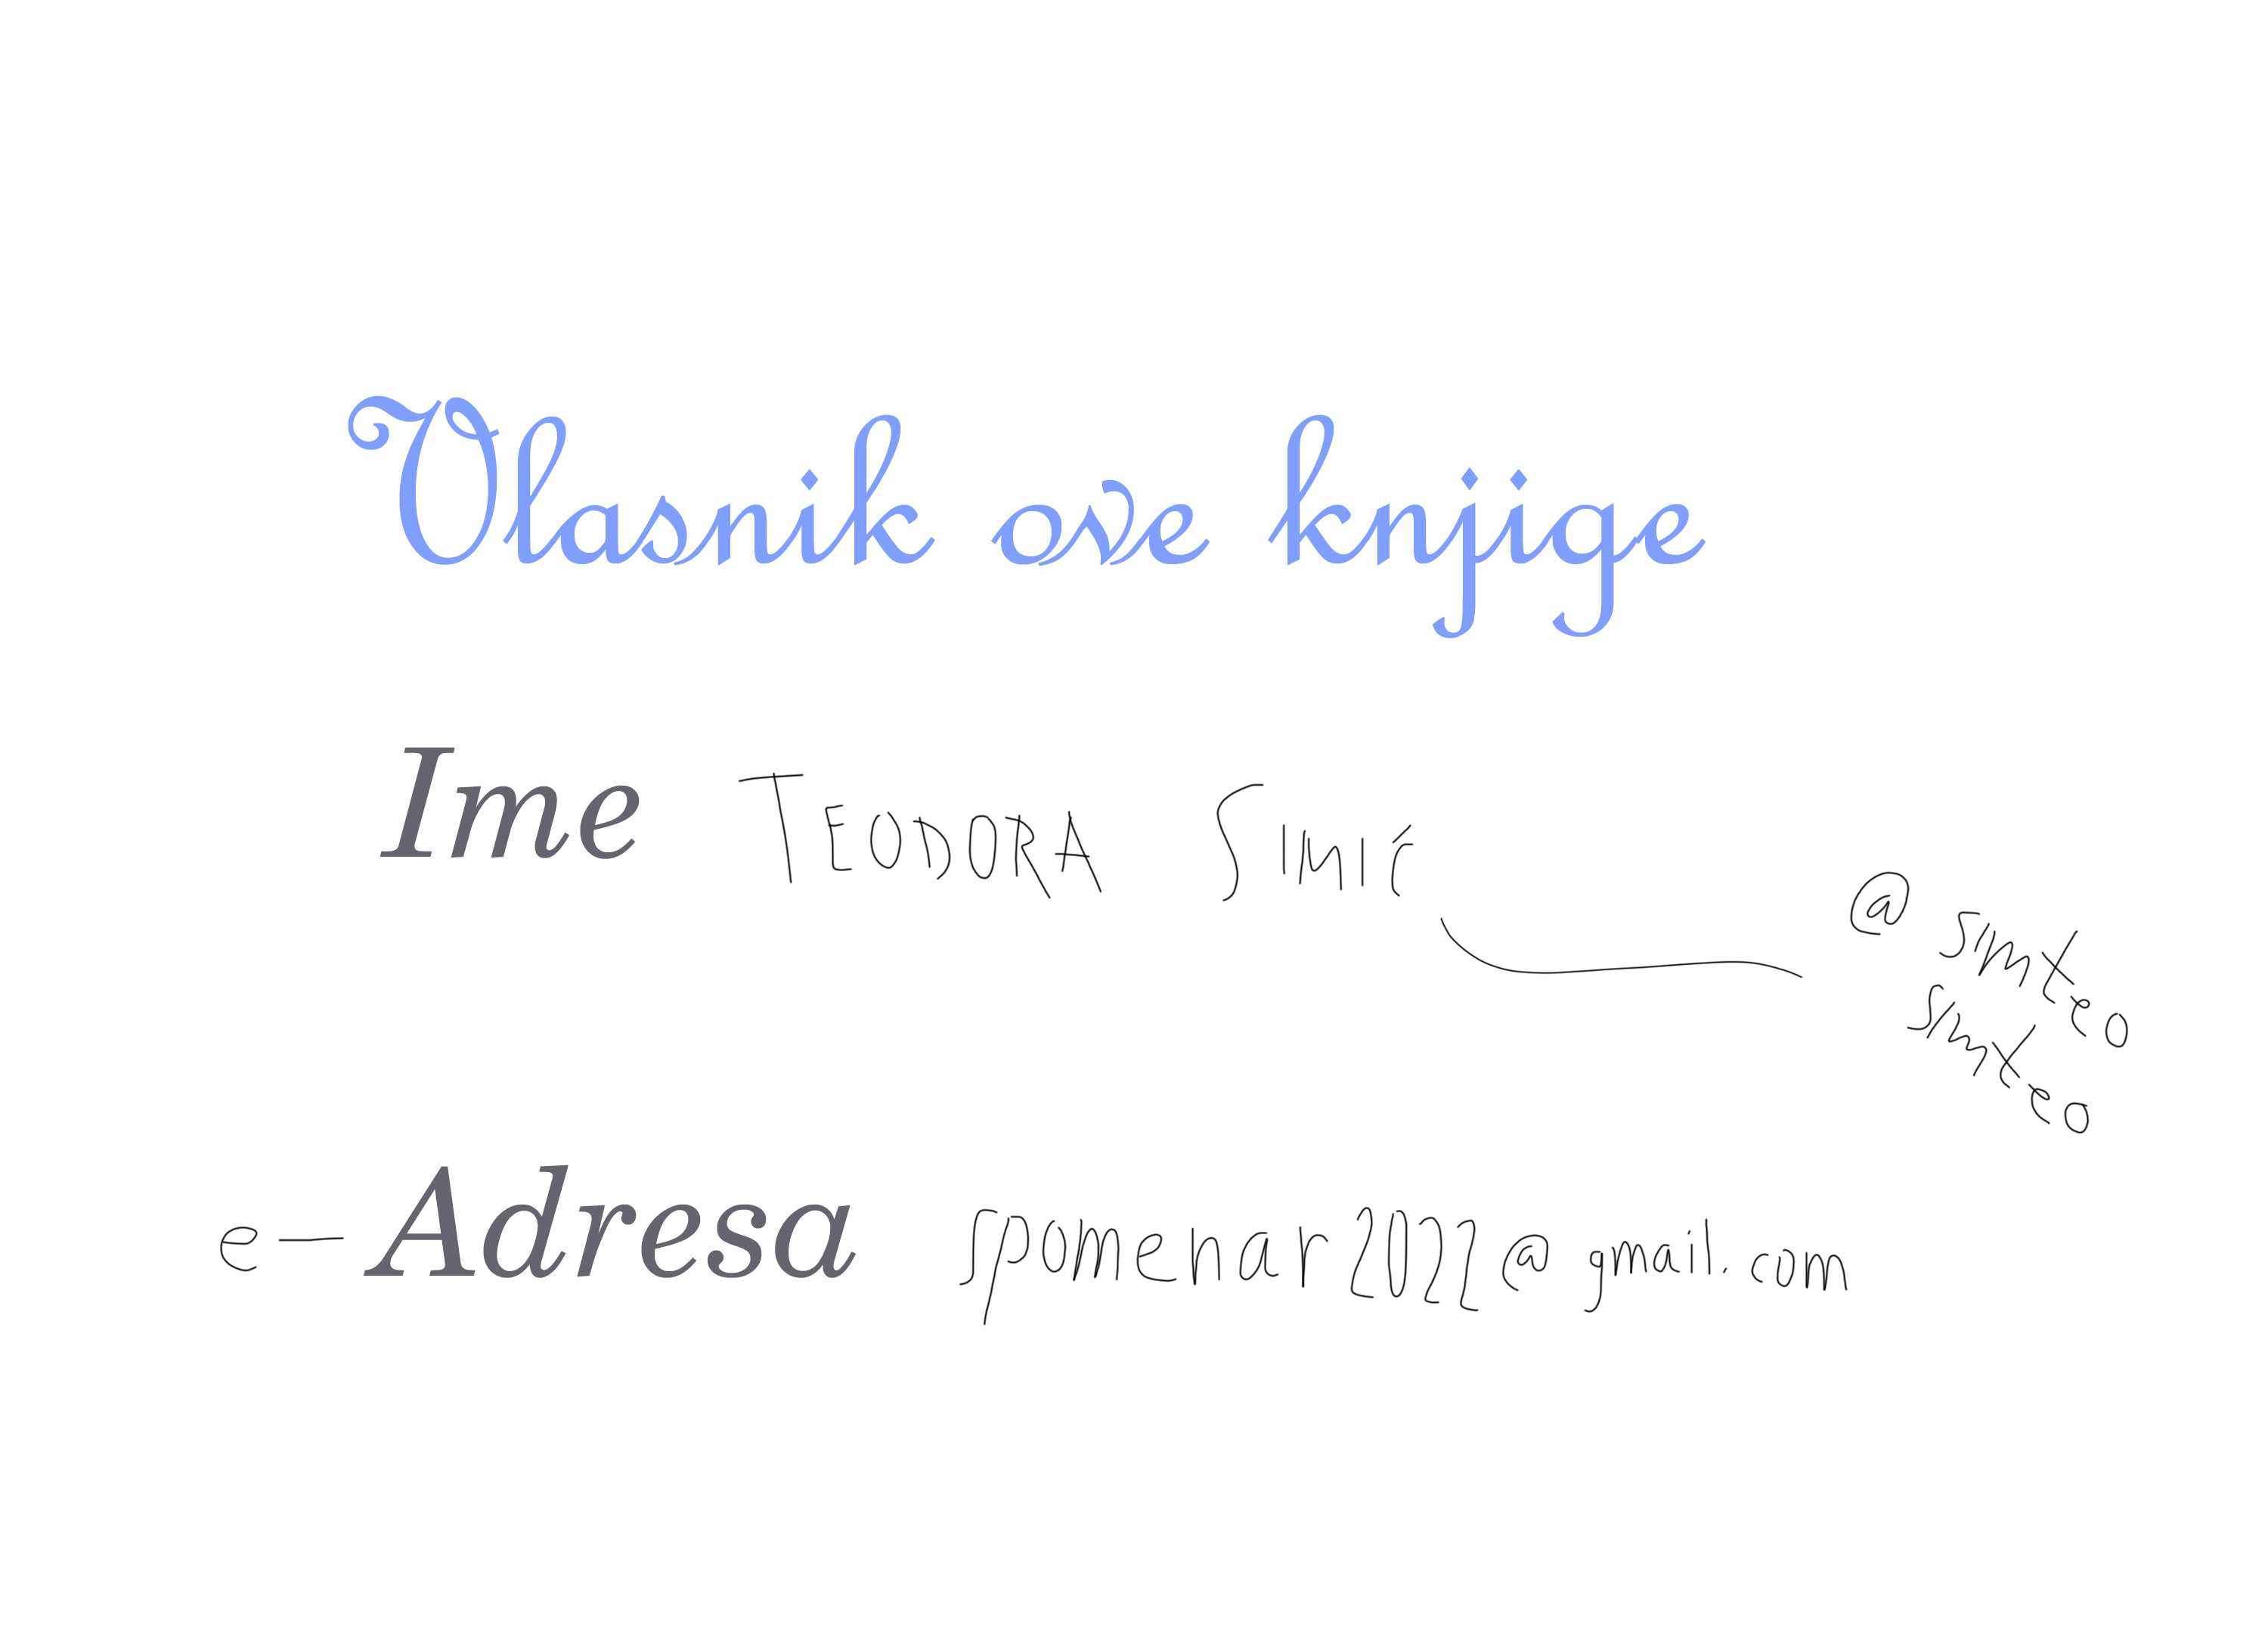 Vlasnik ove knjige
Ime TEODORA SIMIĆ
@smteo
smteo
e-Adresa spomenar2022@gmail.com